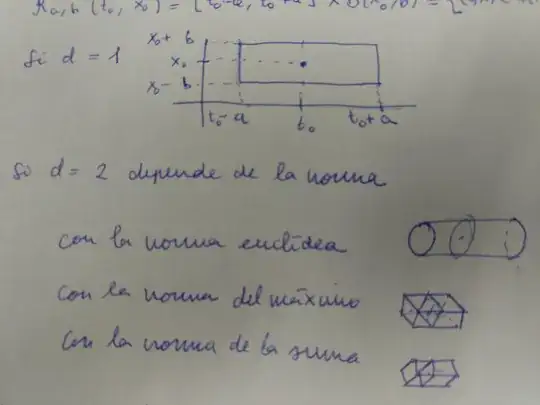 Ra,b (to, xo) = [to-a, to+a] × D(xo,b) = {
Si d = 1
xo + b
xo
xo - b
to - a to to + a
Si d = 2 depende de la norma
con la norma euclídea
con la norma del máximo
con la norma de la suma